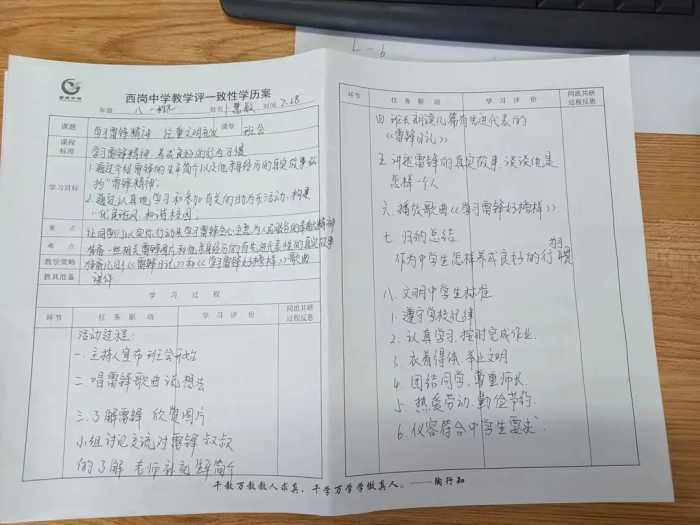 西岗中学教学评一致性学历案
年级 八 姓名 时间 2.28
课题 学习雷锋精神 课型 班会
课程标准 学习雷锋精神 养成良好的行为习惯
学习目标 1.通过介绍雷锋的生平简介以及他亲身经历的真实故事
"雷锋精神";
2.通过认真地学习和参加有关的活动,构建
和谐校园;
重 点 让同学们以实际行动来学习雷锋
难 点 准备一些相关雷锋图片和他亲身经历的有先进代表性的真实故事
教学策略 《雷锋日记》和《学习雷锋好榜样》歌曲
教具准备 课件
学 习 过 程
环节 任 务 驱 动 学 习 评 价 同组共研 过程反思
活动过程:
一.主持人宣布班会开始
二.唱雷锋歌曲 谈想法
三.了解雷锋 欣赏图片
小组讨论交流对雷锋叔叔
的了解 老师补充 简介
环 节 任 务 驱 动 学 习 评 价 同组共研 过程反思
四 班长朗读几篇有先进代表的
《雷锋日记》
五.讲述雷锋的真实故事.谈谈他是
怎样一个人
六.播放歌曲《学习雷锋好榜样》
七.归纳总结
作为中学生怎样养成良好的行为习惯
八.文明中学生标准
1.遵守学校纪律
2.认真学习.按时完成作业.
3.衣着得体 举止文明
4.团结同学.尊重师长.
5.热爱劳动.勤俭节约.
6.仪容符合中学生要求.
千教万教教人求真,千学万学学做真人。——陶行知